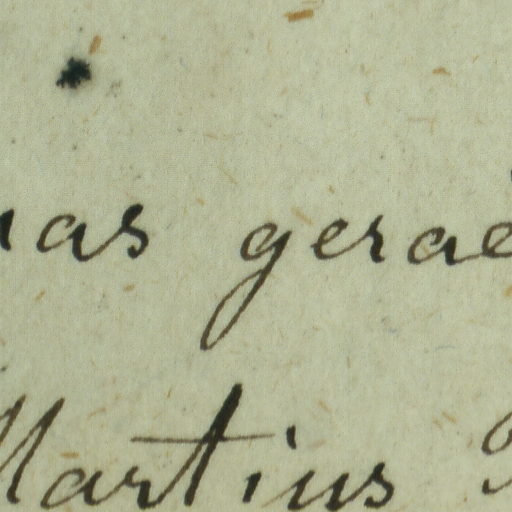 nas gerae
Martius